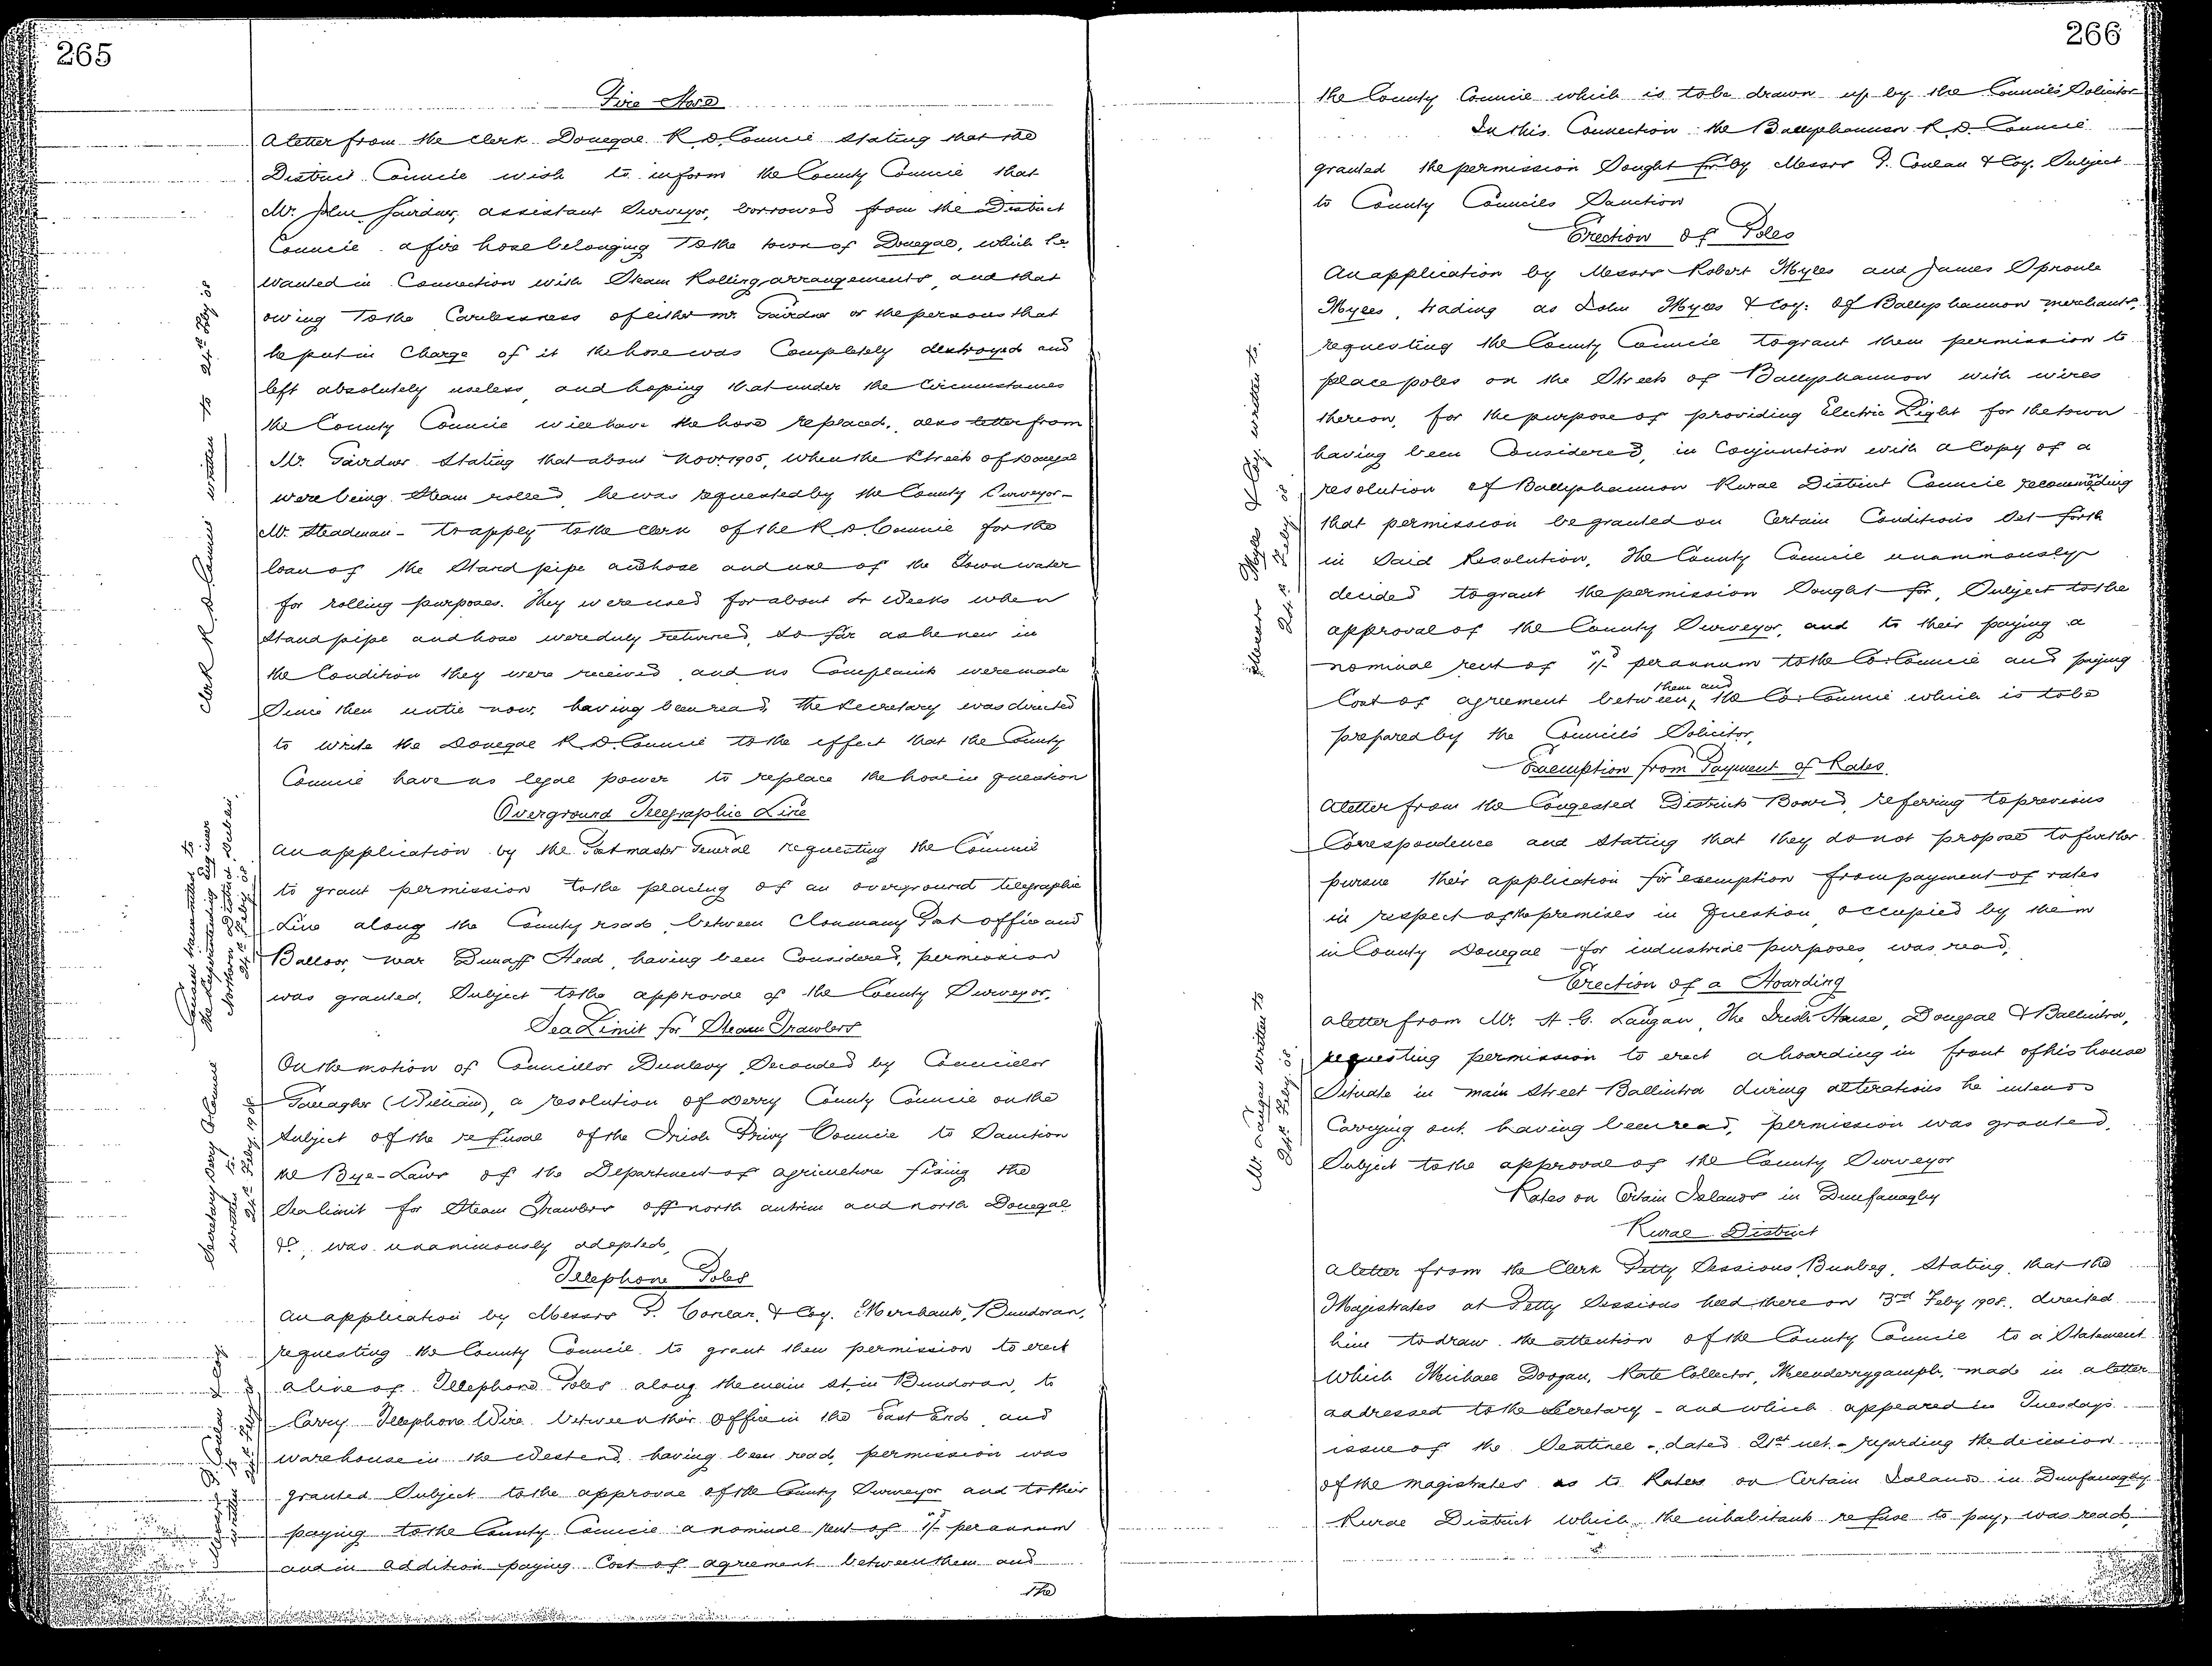 265
Fire Hose
A letter from the Clerk Donegal R D. Council stating that the
District Council wish to inform the County Council that
Mr. John Gairdner, assistant Surveyor, borrowed from the District
Council a fire hose belonging to the town of Donegal, which he
wanted in Connection with Steam Rolling arrangements, and that
owing to the Carelessness of either Mr. Gairdner or the persons that
he put in Charge of it the hose was Completely destroyed and
left absolutely useless, and hoping that under the Circumstances
the County Council will have the hose replaced, also letter from
Mr. Gairdner stating that about Novr. 1905, when the Streets of Donegal
were being Steam rolled, he was requested by the County Surveyor -
Mr. Steadman - to apply to the Clerk of the R. D. Council for the
loan of the Stand pipe and hose and use of the Town water
for rolling purposes. They were used for about Weeks when
Stand pipe and hose were duly returned, so far as he knew in
the Condition they were received, and no Complaints were made
Since then until now, having been read, the Secretary was directed
to write the Donegal R. D. Council to the effect that the County
Council have no legal power to replace the hose in question
Clerk R. D. Council written to 24th Feby 08
Overground Telegraphic Line
An application by the Postmaster General requesting the Council
to grant permission to the placing of an overground telegraphic
Line along the County road, between Clonmany Post office and
near Dunaff Head, having been Considered, permission
was granted, Subject to the approval of the County Surveyor.
Consent transmitted to
the Superintending Engineer
Northern District, Dublin,
24th Feby 08
Sea Limit for Steam Trawlers
On the motion of Councillor Dunlevy, Seconded by Councillor
Gallagher (William), a resolution of Derry County Council on the
Subject of the refusal of the Irish Privy Council to Sanction
the Bye-Laws of the Department of Agriculture fixing the
Sea limit for Steam Trawlers off north Antrim and north Donegal
&c, was unanimously adopted,
Secretary Derry Co Council
written to.
24th Feby 1908
Telephone Poles
An application by Messrs P. Conlan, & Coy. Merchants, Bundoran,
requesting the County Council to grant them permission to erect
a line of Telephone Poles along the main St. in Bundoran, to
Carry Telephone Wire between their Office in the East End, and
warehouse in the West end, having been read, permission was
granted Subject to the approval of the County Surveyor and to their
paying to the County Council a nominal rent of 1/- per annum
and in addition paying Cost of agreement between them and
the
Messrs P. Conlan & Coy
written to 24th Feby 08
266
the County Council which is to be drawn up by the Council's Solicitor
In this Connection the Ballyshannon R. D. Council
granted the permission Sought for by Messrs P. Conlan & Coy. Subject
to County Councils Sanction
Erection of Poles
An application by Messrs Robert Myles and James Sproule
Myles, trading as John Myles & Coy: of Ballyshannon merchants,
requesting the County Council to grant them permission to
place poles on the Streets of Ballyshannon with wires
thereon, for the purpose of providing Electric Light for the town
having been Considered, in Conjunction with a Copy of a
resolution of Ballyshannon Rural District Council recommending
that permission be granted on Certain Conditions Set forth
in Said Resolution, The County Council unanimously
decided to grant the permission Sought for, Subject to the
approval of the County Surveyor, and to their paying a
nominal rent of 1/- per annum to the Co: Council and paying
Cost of agreement between them and the Co: Council which is to be
prepared by the Council's Solicitor,
Messrs Myles & Coy written to.
24th Feby. 08.
Exemption from Payment of Rates.
A letter from the Congested Districts Board, referring to previous
Correspondence and Stating that they do not propose to further
pursue their application for exemption from payment of rates
in respect of the premises in Question, occupied by them
in County Donegal for industrial purposes, was read,
Erection of a Hoarding
A letter from Mr. Langan, The Irish House, Donegal & Ballintra,
requesting permission to erect a hoarding in front of his house
Situate in main Street Ballintra during alterations he intends
Carrying out, having been read, permission was granted,
Subject to the approval of the County Surveyor
Mr. Langan written to
24th Feby. 08.
Rates on Certain Islands in Dunfanaghy
Rural District
A letter from the Clerk Petty Sessions, Bunbeg, Stating, that the
Magistrates at Petty Sessions held there on 3rd Feby 1908., directed
him to draw the attention of the County Council to a Statement
which Michael Doogan, Rate Collector, made in a letter
addressed to the Secretary - and which appeared in Tuesdays
issue of the Sentinel -, dated 21st ult. - regarding the decision
of the magistrates as to Rates on Certain Islands in Dunfanaghy
Rural District which the inhabitants refuse to pay, was read,